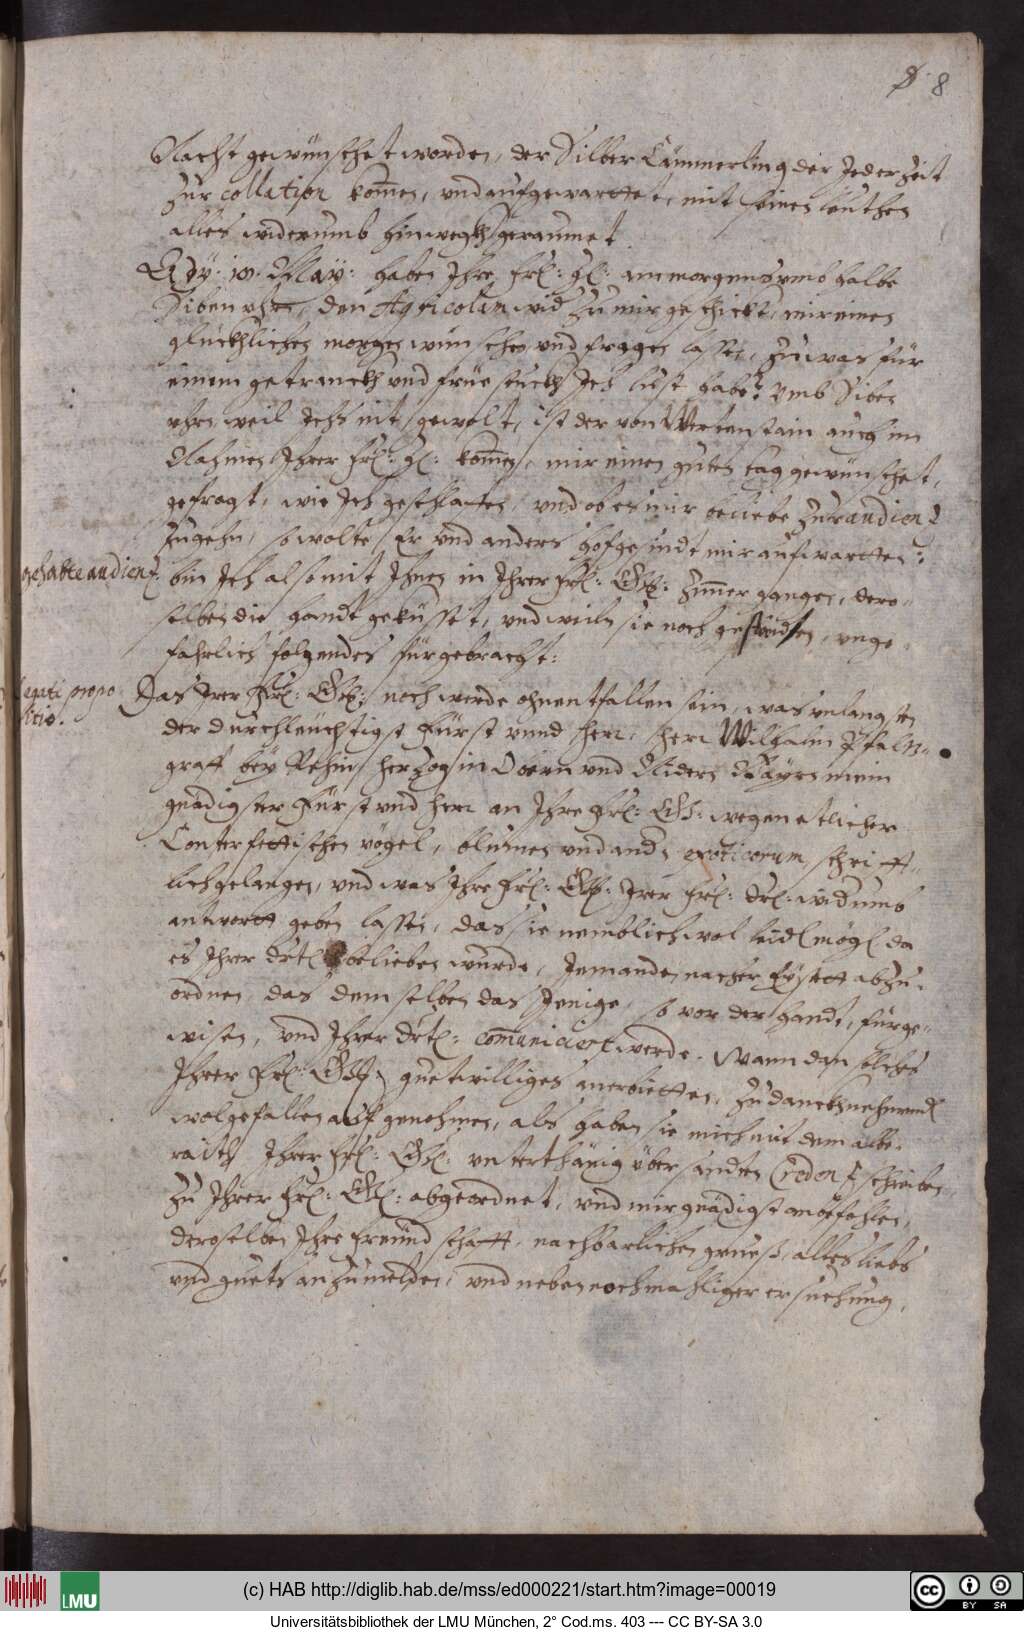 8
Nacht gewünschet worden, der Silber Cämmerling der Jederzeit
zur collation kom̄en, vnd aufgewarttet, mit seinen leuthen
alles widerumb hinwegkh geraumet.
Ady: 18. May: haben Ihre frl: gl: am morgens vmb halbe
Siben vhr, den Agricolam wid zu mir geschickt, mir einen
glückhlichen morgen wünschen vnd fragen lassen, zu was für
einem getranckh vnd früestuckh Ich lust habe? Vmb Siben
vhrn weil Ichs nit gewolt, ist der von Wertenstain auch im
Nahmen Ihrer frl: gl: kom̄en, mir einen guten tag gewünschet,
gefragt, wie Ich geschlaffen, vnd ob es mir beliebe zur audienz
zugehn, so wolte Er vnd anders hofgesindt mir aufwartten:
gehabte audienz.
bin Ich also mit Ihnen in Ihrer Frl: Gl: Zim̄er gangen, dero-
selben die handt geküsset, vnd weiln sie noch gestanden, unge-
fahrlich folgendes fürgebracht:
Legati propo
sitio.
Das Irer Frl: Gl: noch werde ohnentfallen sein, was vnlangsten
der durchleuchtigst Fürst vnnd herr, herr Wilhalm Pfaltz-
graff bey Rhein, herzog in Obern vnd Nidern Bayrn mein
gnädigster Fürst vnd herr an Ihre Frl: Gl: wegen etlicher
Conterfettischen vögel, bluemen vnd and exoticorum, schrifft-
lich gelangen, vnd was Ihre Frl: Gl: Irer Frl: Drl: widumb
antwortt geben lassen, das sie nemblich wol leiden mögen da
es Ihrer Drtl belieben wurde, Jemanden nacher Eystett abzu-
ordnen, das demselben das Jenige, so vor der handt, fürge-
wisen, vnd Ihrer Drtl: com̄uniciert werde. Wann dan solches
Ihrer Frl: Gl: guetwilliges anerbietten, zu danckhnehmend
wolgefallen auf genohmen, als haben sie mich mit dem albe-
raith Ihrer Frl: Gl: unterthänig übersandten Credenz schreiben
zu Ihrer Frl: Gl: abgeordnet, vnd mir gnädigst anbefohlen,
deroselben Ihre freundschafft, nachbarlichen grueß, alles liebs
vnd guets anzumelden, vnd neben nochmahliger ersuchung,
LMU
(c) HAB http://diglib.hab.de/mss/ed000221/start.htm?image=00019
cc BY SA
Universitätsbibliothek der LMU München, 2° Cod.ms. 403 --- CC BY-SA 3.0